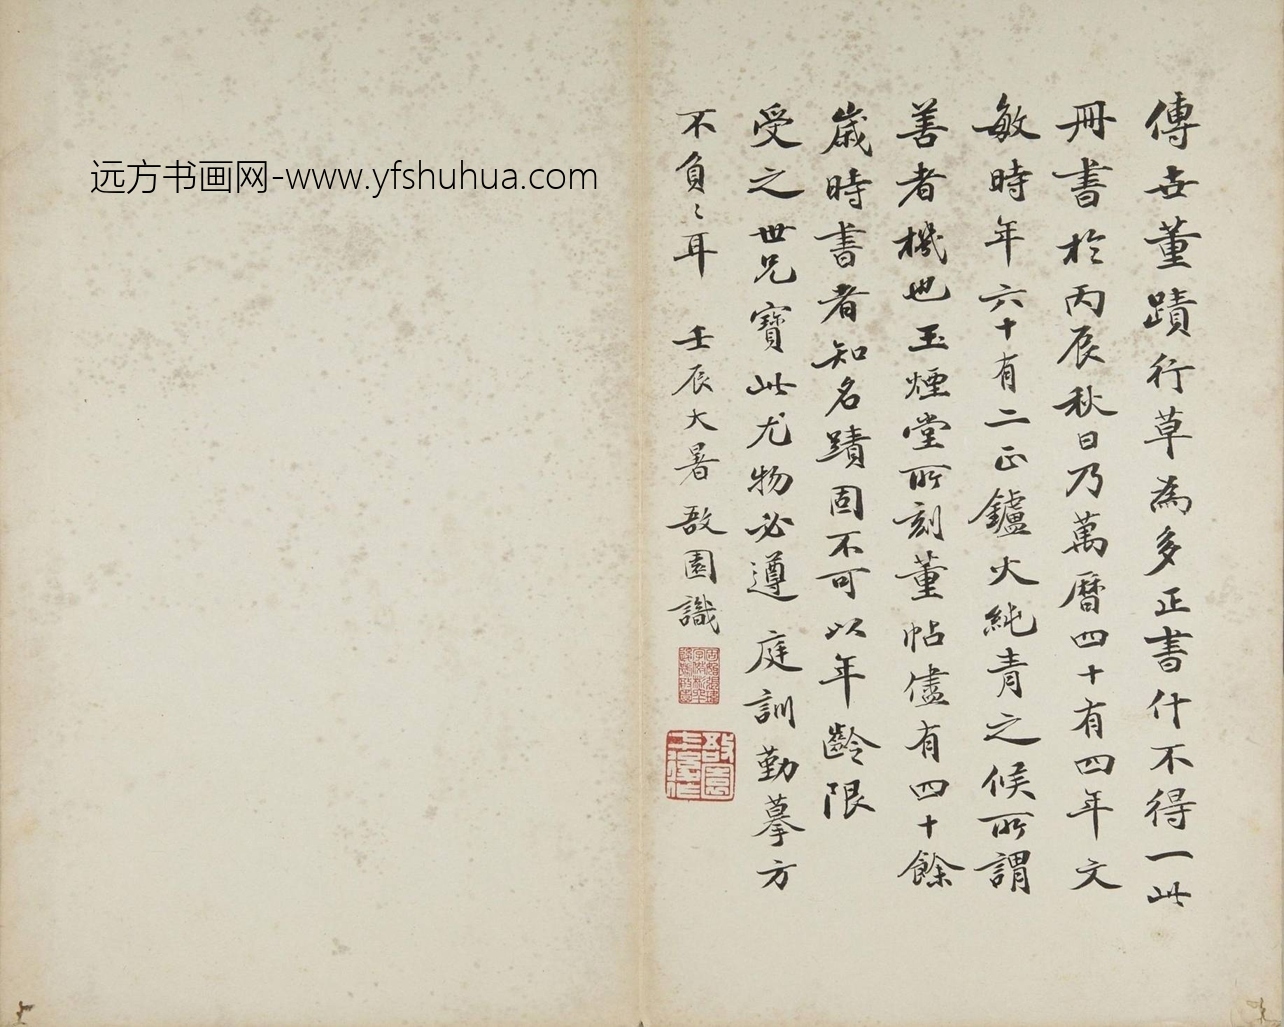 傳世董蹟行草為多正書什不得一此
冊書於丙辰秋日乃萬曆四十有四年文
敏時年六十有二正鑪火純青之候所謂
善者機也玉煙堂所刻董帖儘有四十餘
歲時書者知名蹟固不可以年齡限
受之世兄寶此尤物必遵庭訓勤摹方
不負〻耳 壬辰大暑敔園識
远方书画网-www.yfshuhua.com